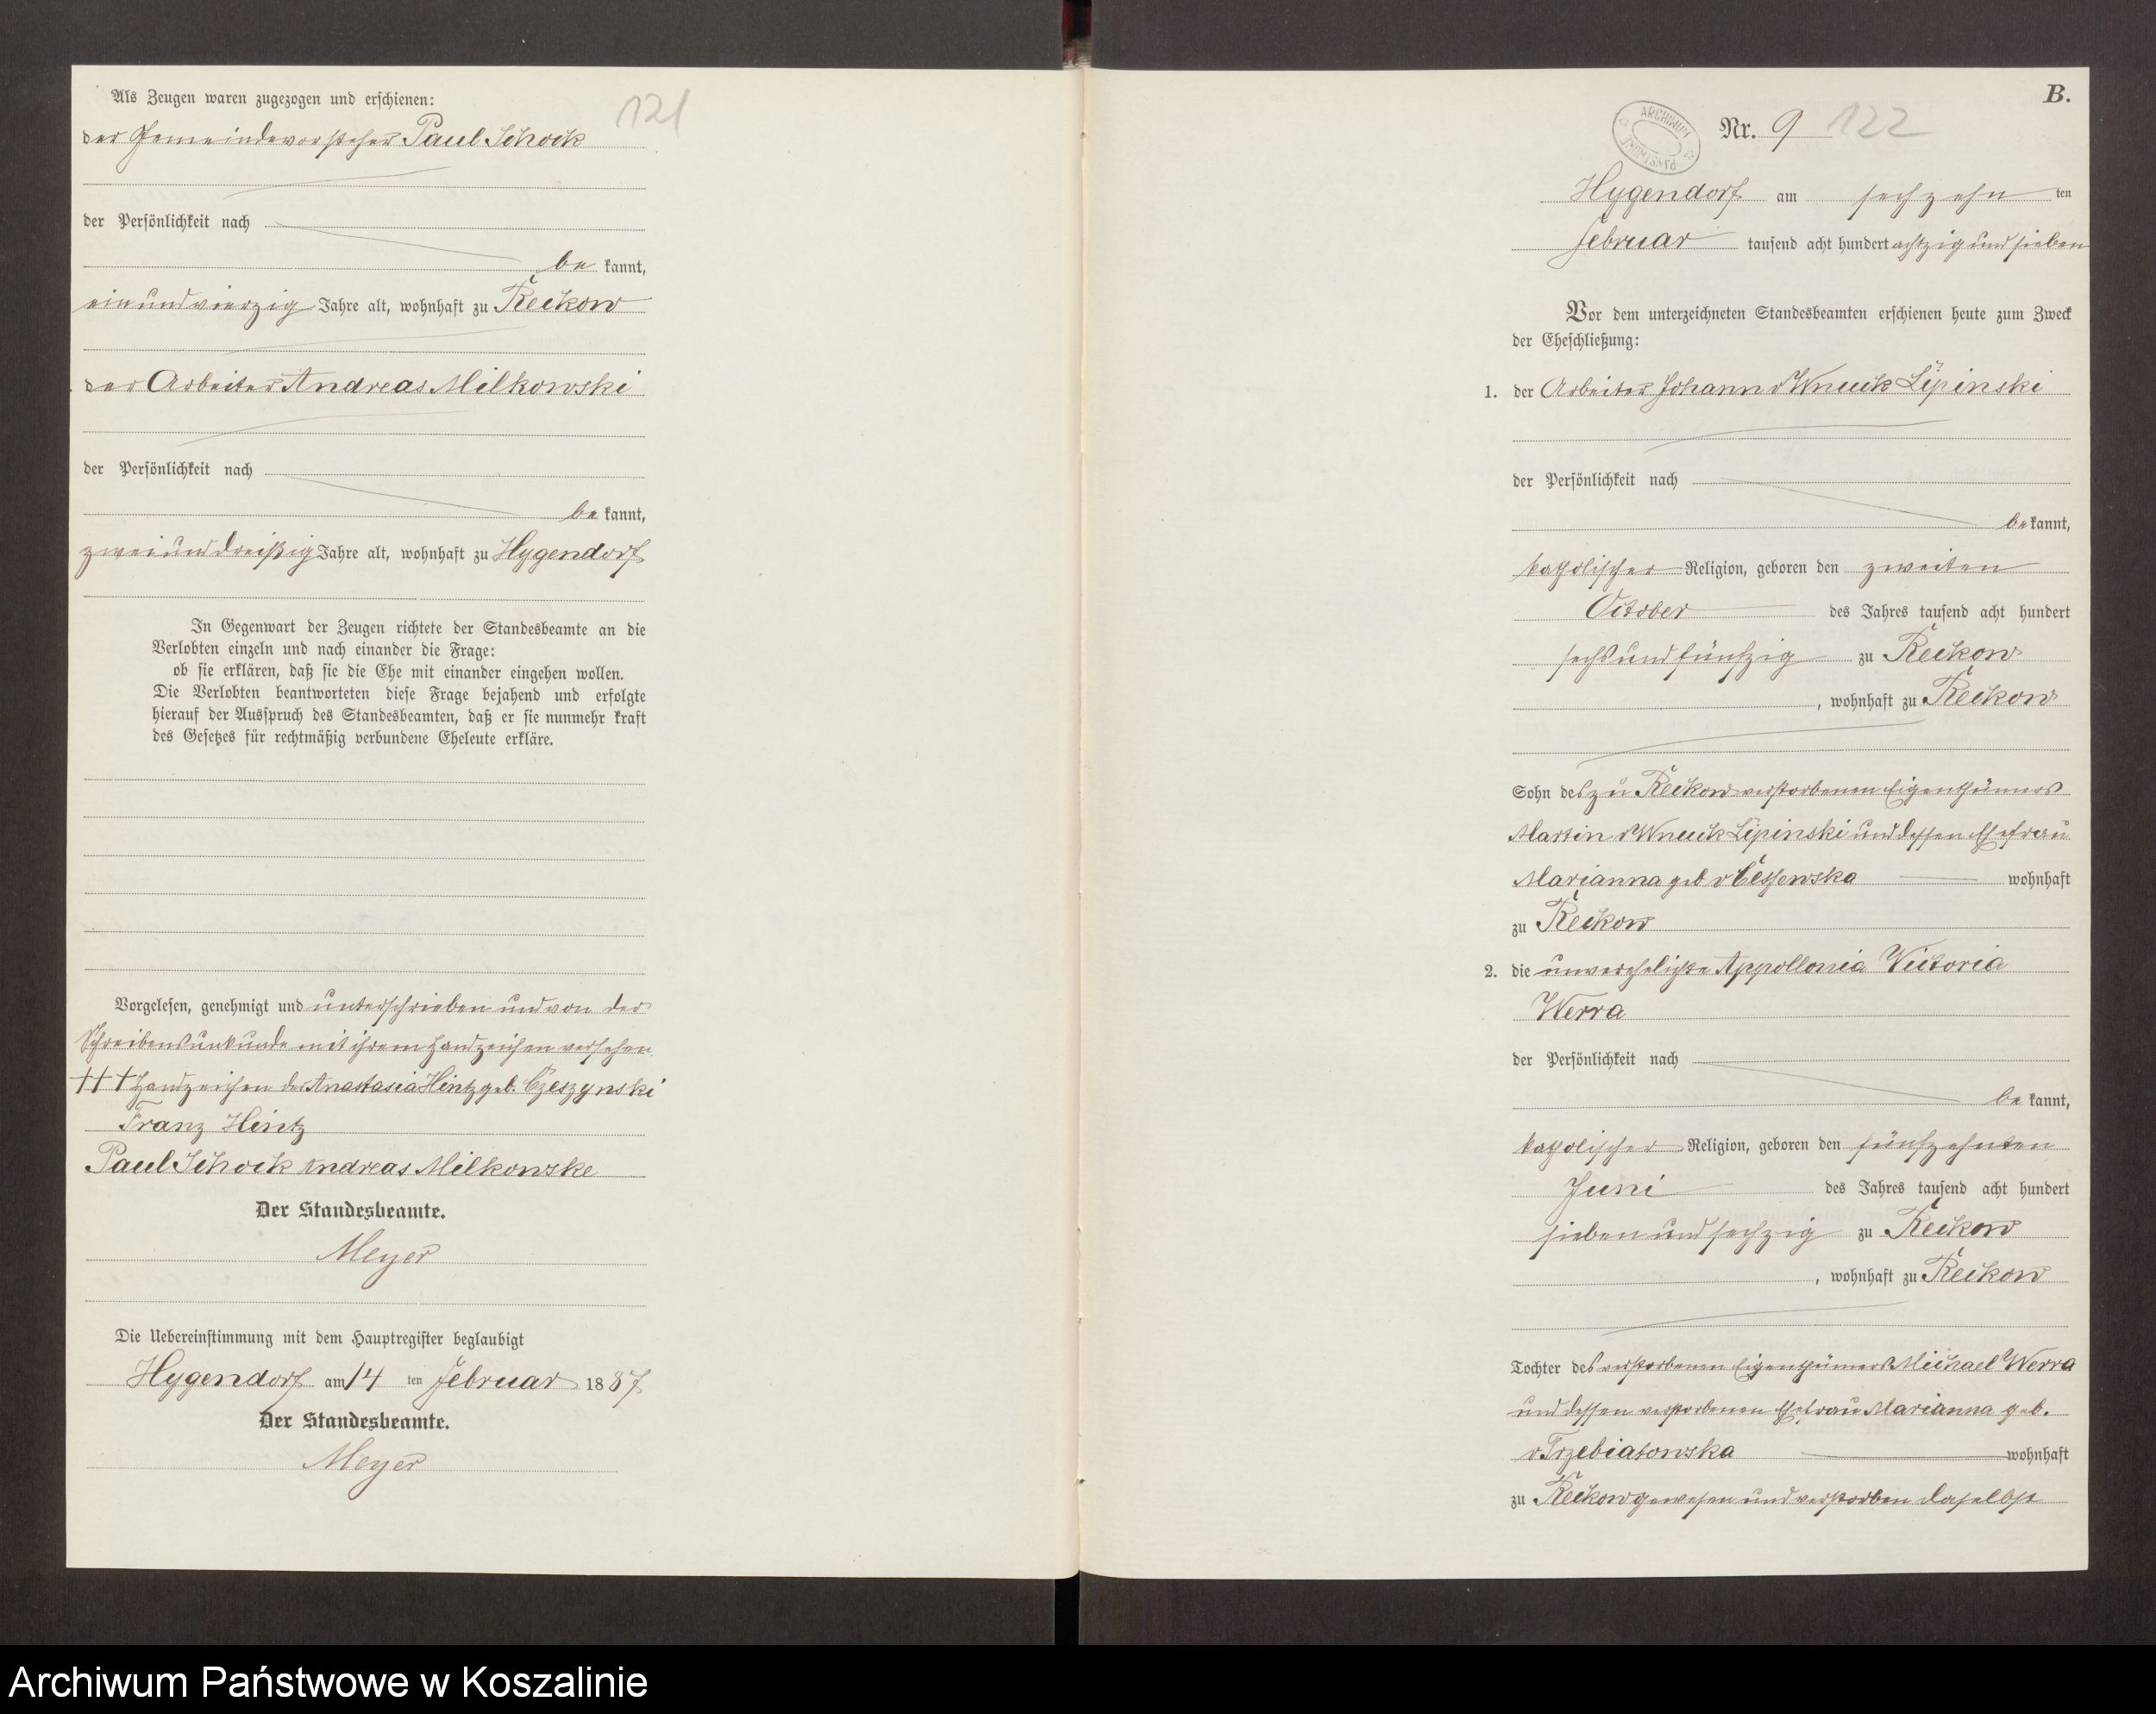 Als Zeugen waren zugezogen und erschienen:
121
der Gemeindevorsteher Paul Schock
der Persönlichkeit nach
be kannt,
einundvierzig Jahre alt, wohnhaft zu Reckow
der Arbeiter Andreas Milkowski
der Persönlichkeit nach
be kannt,
zweiunddreißig Jahre alt, wohnhaft zu Hygendorf
In Gegenwart der Zeugen richtete der Standesbeamte an die
Verlobten einzeln und nach einander die Frage:
ob sie erklären, daß sie die Ehe mit einander eingehen wollen.
Die Verlobten beantworteten diese Frage bejahend und erfolgte
hierauf der Ausspruch des Standesbeamten, daß er sie nunmehr kraft
des Gesetzes für rechtmäßig verbundene Eheleute erkläre.
Vorgelesen, genehmigt und unterschrieben und von der
Schreibensunkunde mit ihrem Handzeichen versehen
††† Handzeichen der Anastasia Hintz geb. Czeszynski
Franz Hintz
Paul Schock Andreas Milkowske
Der Standesbeamte.
Meyer
Die Uebereinstimmung mit dem Hauptregister beglaubigt
Hygendorf am 14 ten Februar 1887
Der Standesbeamte.
Meyer
B.
ARCHIWUM PAŃSTWOWE
Nr. 9 122
Hygendorf am sechzehn ten
Februar tausend acht hundert achtzig und sieben
Vor dem unterzeichneten Standesbeamten erschienen heute zum Zweck
der Eheschließung:
1. der Arbeiter Johann v Wnuck Lipinski
der Persönlichkeit nach
be kannt,
katholischer Religion, geboren den zweiten
October des Jahres tausend acht hundert
sechs und fünfzig zu Reckow
, wohnhaft zu Reckow
Sohn des zu Reckow verstorbenen Eigenthümers
Martin v Wnuck Lipinski und dessen Ehefrau
Marianna geb v wohnhaft
zu Reckow
2. die unverehelichte Appollonia Victoria
Werra
der Persönlichkeit nach
be kannt,
katholischer Religion, geboren den fünfzehnten
Juni des Jahres tausend acht hundert
sieben und sechzig zu Reckow
, wohnhaft zu Reckow
Tochter des verstorbenen Eigenthümers Michael Werra
und dessen verstorbenen Ehefrau Marianna geb.
v. Trzebiatowska wohnhaft
zu Reckow gewesen und verstorben daselbst
Archiwum Państwowe w Koszalinie